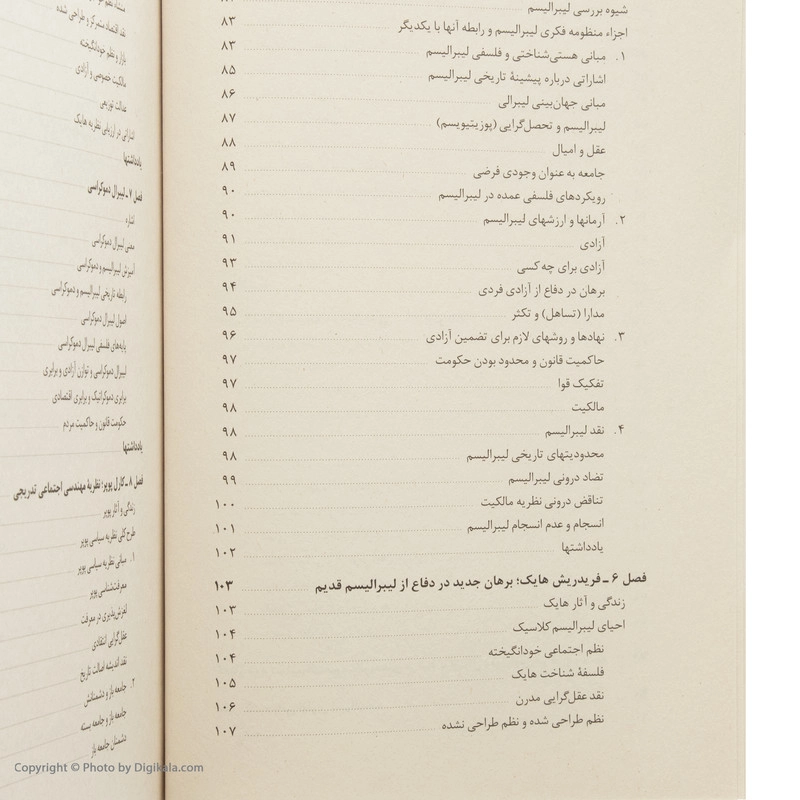 شیوه بررسی لیبرالیسم
اجزاء منظومه فکری لیبرالیسم و رابطه آنها با یکدیگر ۸۳
۱. مبانی هستی‌شناختی و فلسفی لیبرالیسم ۸۳
اشاراتی درباره پیشینهٔ تاریخی لیبرالیسم ۸۵
مبانی جهان‌بینی لیبرالی ۸۶
لیبرالیسم و تحصل‌گرایی (پوزیتیویسم) ۸۷
عقل و امیال ۸۸
جامعه به عنوان وجودی فرضی ۸۹
رویکردهای فلسفی عمده در لیبرالیسم ۹۰
۲. آرمانها و ارزشهای لیبرالیسم ۹۰
آزادی ۹۱
آزادی برای چه کسی ۹۳
برهان در دفاع از آزادی فردی ۹۴
مدارا (تساهل) و تکثر ۹۵
۳. نهادها و روشهای لازم برای تضمین آزادی ۹۶
حاکمیت قانون و محدود بودن حکومت ۹۷
تفکیک قوا ۹۷
مالکیت ۹۸
۴. نقد لیبرالیسم ۹۸
محدودیتهای تاریخی لیبرالیسم ۹۸
تضاد درونی لیبرالیسم ۹۹
تناقض درونی نظریه مالکیت ۱۰۰
انسجام و عدم انسجام لیبرالیسم ۱۰۱
یادداشتها ۱۰۲
فصل ۶ ـ فریدریش هایک؛ برهان جدید در دفاع از لیبرالیسم قدیم ۱۰۳
زندگی و آثار هایک ۱۰۳
احیای لیبرالیسم کلاسیک ۱۰۴
نظم اجتماعی خودانگیخته ۱۰۴
فلسفهٔ شناخت هایک ۱۰۵
نقد عقل‌گرایی مدرن ۱۰۶
نظم طراحی شده و نظم طراحی نشده ۱۰۷
نقد اقتصاد متمرکز و طراحی شده
بازار و نظم خودانگیخته
مالکیت خصوصی و آزادی
عدالت توزیعی
اشاراتی در ارزیابی نظریه هایک
یادداشتها
فصل ۷ ـ لیبرال دموکراسی
اشاره
معنی لیبرال دموکراسی
آمیزش لیبرالیسم و دموکراسی
رابطه تاریخی لیبرالیسم و دموکراسی
اصول لیبرال دموکراسی
پایه‌های فلسفی لیبرال دموکراسی
لیبرال دموکراسی و توازن آزادی و برابری
برابری دموکراتیک و برابری اقتصادی
حکومت قانون و حاکمیت مردم
یادداشتها
فصل ۸ ـ کارل پوپر؛ نظریهٔ مهندسی اجتماعی تدریجی
زندگی و آثار پوپر
طرح کلی نظریه سیاسی پوپر
۱. مبانی نظریه سیاسی پوپر
معرفت‌شناسی پوپر
لغزش‌پذیری در معرفت
عقل‌گرایی انتقادی
نقد اندیشه اصالت تاریخ
۲. جامعه باز و دشمنانش
جامعه باز و جامعه بسته
دشمنان جامعه باز
Copyright © Photo by Digikala.com